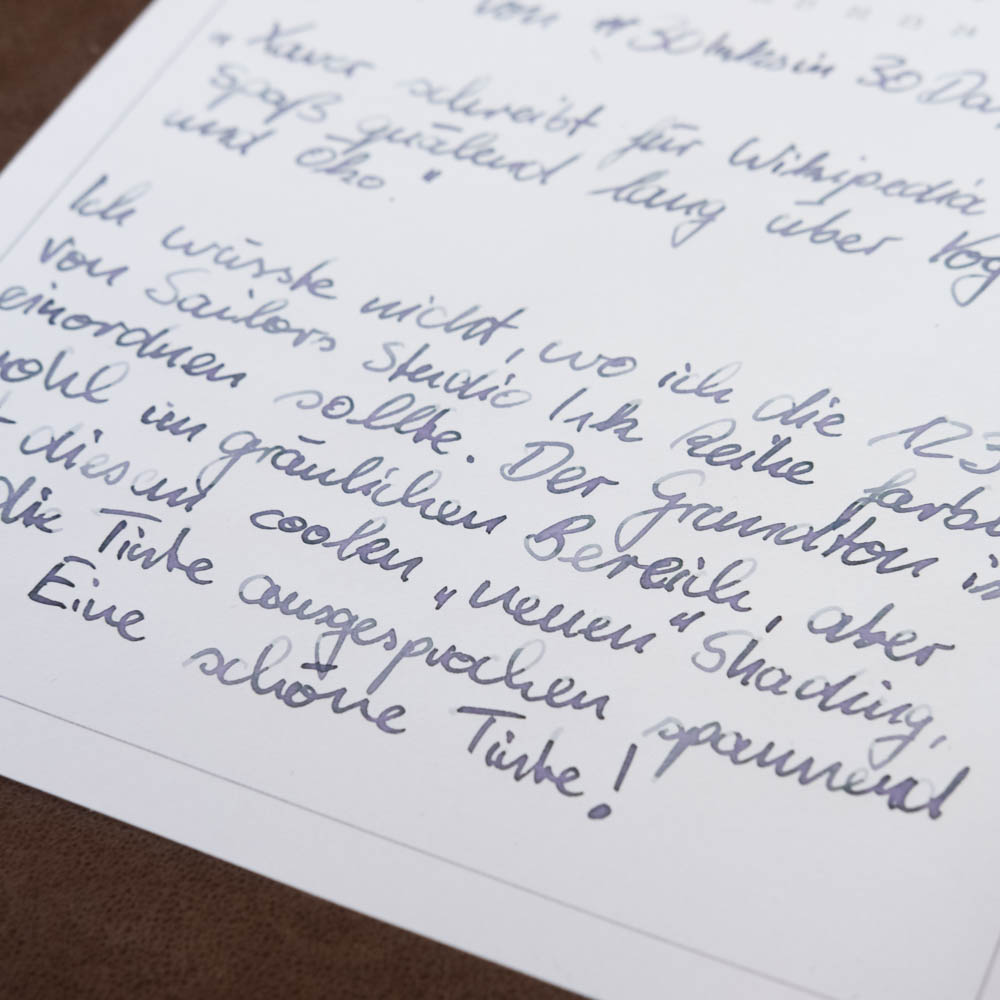 21 22 23 24
von #30Inksin 30 Da
„Xaver schreibt für Wikipedia
Spaß quälend lang über Yog
und Öko."
Ich wüsste nicht, wo ich die 123
von Sailors Studio Ink Reihe farb
einordnen sollte. Der Grundton i
ohl im gräulichen Bereich, aber
t diesem coolen „neuen" Shading,
die Tinte ausgesprochen spannend
Eine schöne Tinte!